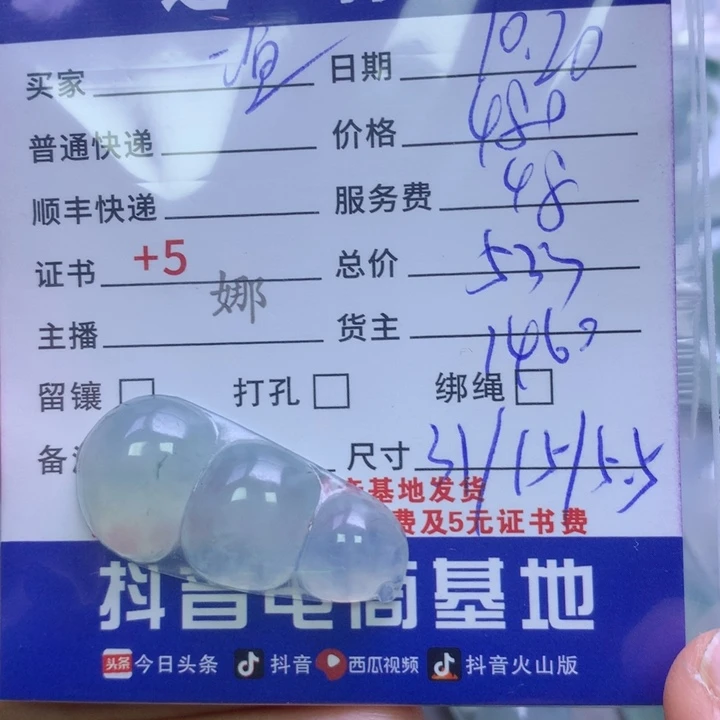 买家 日期 10.20
普通快递 价格 480
顺丰快递 服务费 48
证书 +5 总价 533
主播 娜 货主 1460
留镶 打孔 绑绳
备 尺寸 31/15/5.5
基地发货
费及5元证书费
抖音电商基地
头条 今日头条 抖音 西瓜视频 抖音火山版